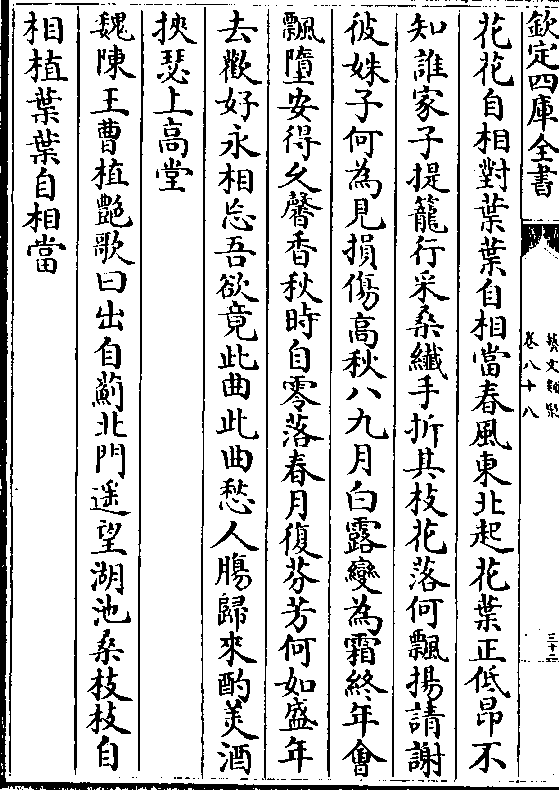 欽定四庫全書
藝文類聚
卷八十八
三十二
花花自相對葉葉自相當春風東北起花葉正低昂不
知誰家子提籠行采桑纖手折其枝花落何飄揚請謝
彼姝子何為見損傷高秋八九月白露變為霜終年會
飄墮安得久馨香秋時自零落春月復芬芳何如盛年
去歡好永相忘吾欲竟此曲此曲愁人膓歸來酌美酒
挾瑟上高堂
魏陳王曹植艷歌曰出自薊北門遥望湖池桑枝枝自
相植葉葉自相當